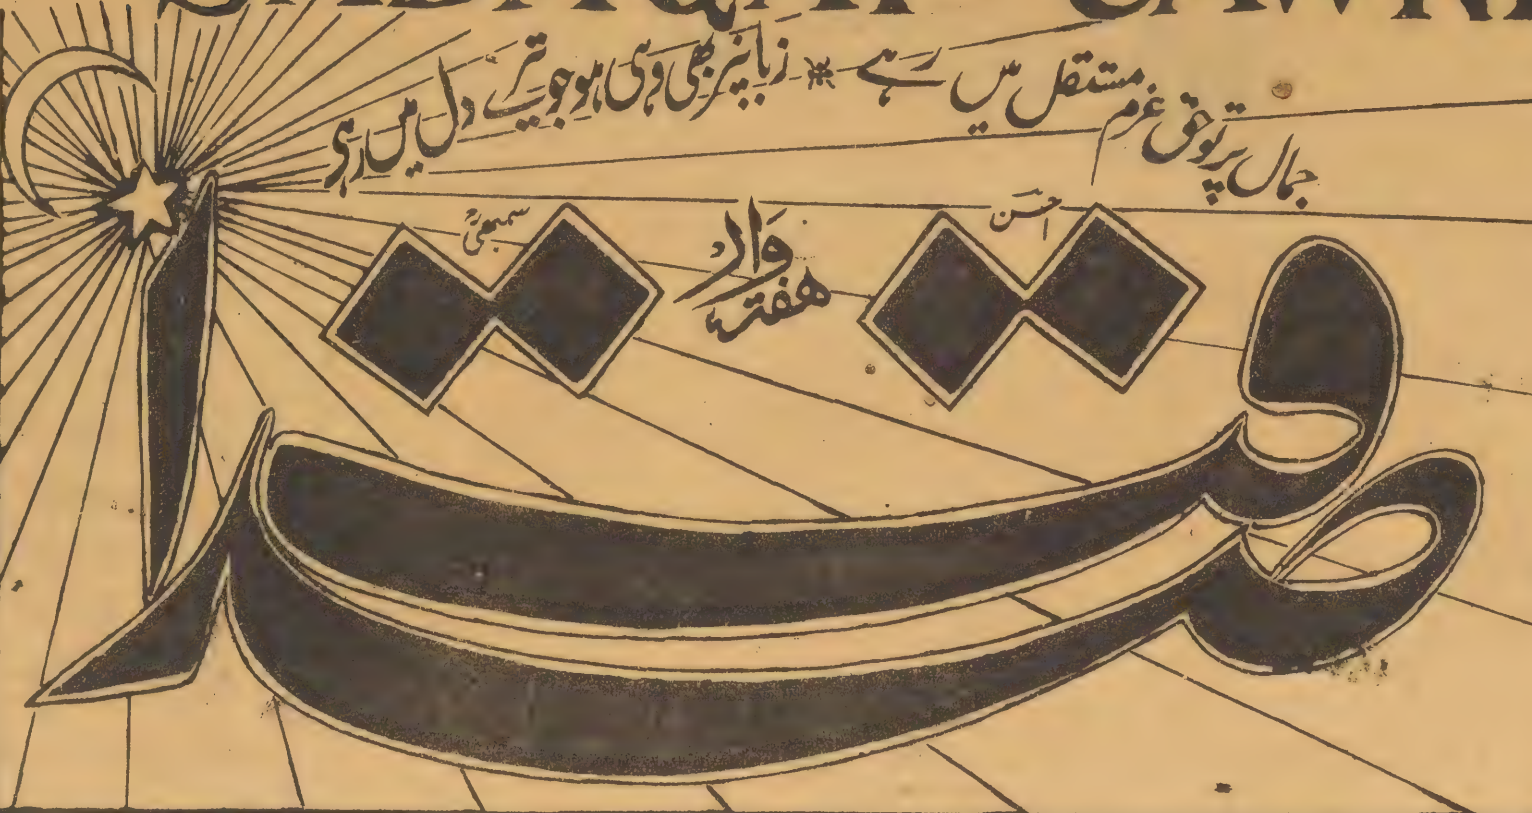 جمال پرتو حق عزم مستقل میں رہے زبانپر بھی وہی ہو جو ترے دل میں رہی
احسن
هفته وار
صداقت